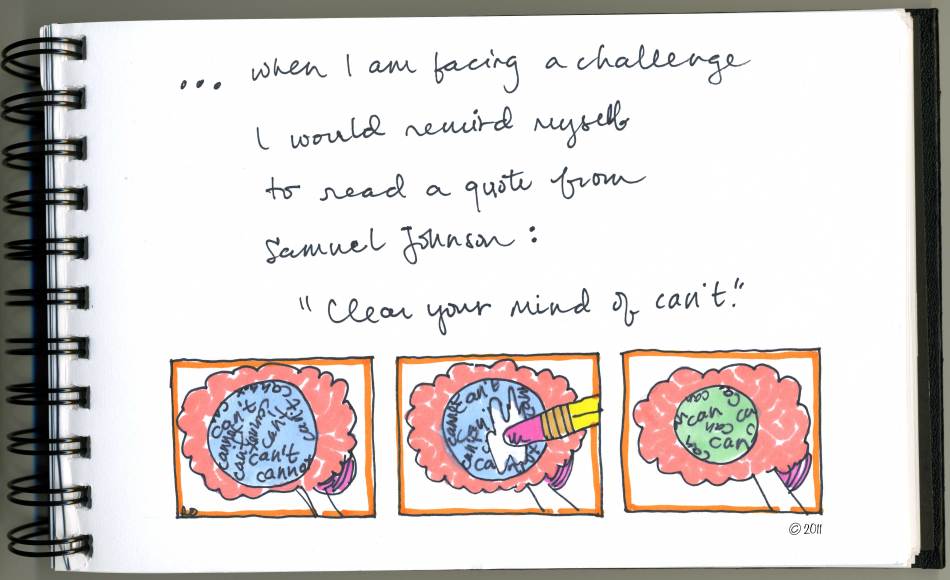 ... when I am facing a challenge
I would remind myself
to read a quote from
Samuel Johnson :
"Clear your mind of can't."
can't
cannot
can't
can't
cannot
cannot
can't
can
can
can
can
© 2011